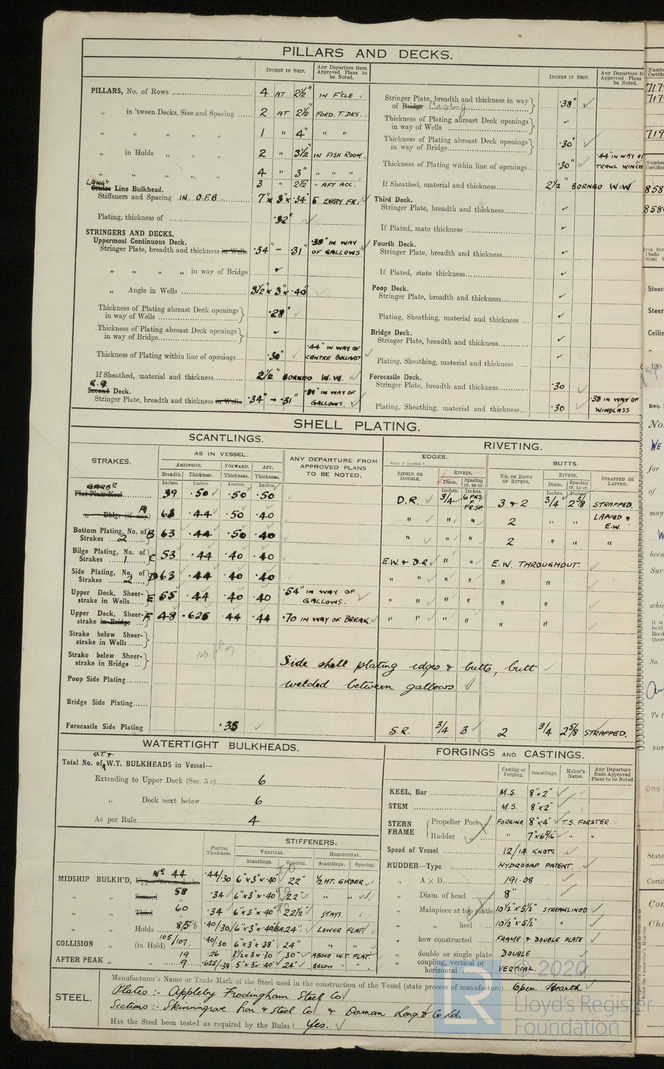 PILLARS AND DECKS.
INCHES IN SHIP. Any Departure from Approved Plans to be Noted.
PILLARS, No. of Rows 4 AT 2½" IN F'CLE.
" in 'tween Decks, Size and Spacing 2 AT 2½" FORD. T. DKS.
" " " " 1 " 4" " "
" in Holds " 2 " 3½" IN FISH ROOM.
" " " " 4 " 3" " " "
Line Bulkhead. 3 " 2½ " AFT ACC.
Stiffeners and Spacing IN O.F.B 7" x 3" x .34" EVERY FR.
Plating, thickness of .32"
STRINGERS AND DECKS.
Uppermost Continuous Deck.
Stringer Plate, breadth and thickness in Wells .34" - .31" .38" IN WAY OF GALLOWS
" " " " in way of Bridge
" Angle in Wells 3½" x 3" x .40"
Thickness of Plating abreast Deck openings in way of Wells .28"
Thickness of Plating abreast Deck openings in way of Bridge
Thickness of Plating within line of openings .30" .44" IN WAY OF CENTRE BOLLARD
If Sheathed, material and thickness 2½" BORNEO W.W.
Second Deck.
Stringer Plate, breadth and thickness in Wells .34" - .31" IN WAY OF GALLOWS.
INCHES IN SHIP. Any Departure from Approved Plans to be Noted.
Stringer Plate, breadth and thickness in way of Bridge Casing .38"
Thickness of Plating abreast Deck openings in way of Wells
Thickness of Plating abreast Deck openings in way of Bridge .30"
Thickness of Plating within line of openings .30" .44" IN WAY OF TRAWL WINCH
If Sheathed, material and thickness 2½" BORNEO W.W
Third Deck.
Stringer Plate, breadth and thickness
If Plated, state thickness
Fourth Deck.
Stringer Plate, breadth and thickness
If Plated, state thickness
Poop Deck.
Stringer Plate, breadth and thickness
Plating, Sheathing, material and thickness
Bridge Deck.
Stringer Plate, breadth and thickness
Plating, Sheathing, material and thickness
Forecastle Deck.
Stringer Plate, breadth and thickness .30
Plating, Sheathing, material and thickness .30 .38 IN WAY OF WINDLASS
SHELL PLATING.
SCANTLINGS.
RIVETING.
STRAKES.
AS IN VESSEL.
AMIDSHIPS. FORWARD. AFT.
Breadth. Thickness. Thickness. Thickness.
ANY DEPARTURE FROM APPROVED PLANS TO BE NOTED.
EDGES. BUTTS.
SINGLE OR DOUBLE. RIVETS. Diam. Spacing cr. to cr.
NO. OF ROWS OF RIVETS. RIVETS. Diam. Spacing cr. to cr. STRAPPED OR LAPPED.
Flat Plate Keel 39 .50 .50 .50 D.R. 3/4 3 & 2 3/4 2 5/8 STRAPPED.
" Dblg. (if any) A 63 .44 .50 .40 " " 2 " " LAPPED & E.W.
Bottom Plating, No. of Strakes 2 B 63 .44 .50 .40 " " 2 " "
Bilge Plating, No. of Strakes 1 C 53 .44 .40 .40 E.W. & D.R. " " E.W. THROUGHOUT.
Side Plating, No. of Strakes 2 D 63 .44 .40 .40 " " "
Upper Deck, Sheerstrake in Wells E 65 .44 .40 .40 .54" IN WAY OF GALLOWS.
Upper Deck, Sheerstrake in Bridge F 48 .625 .44 .44 .70 IN WAY OF BREAK
Strake below Sheerstrake in Wells
Strake below Sheerstrake in Bridge
Poop Side Plating
Side shell plating edges & butts, butt
welded between gallows
Bridge Side Plating
Forecastle Side Plating .35 S.R. 3/4 3 2 3/4 2 5/8 STRAPPED.
WATERTIGHT BULKHEADS.
Total No. of O.T. & W.T. BULKHEADS in Vessel—
Extending to Upper Deck (Sec. 3 c) 6
" Deck next below 6
As per Rule 4
Plating Thickness. STIFFENERS. VERTICAL. HORIZONTAL.
Scantlings. Spacing. Scantlings. Spacing.
MIDSHIP BULKH'D, No 44 .44/30 6" x 3" x .40 22" ½ HT. GIRDER
" " 58 .34 6" x 3" x .40 22"
" " Third 60 .34 6" x 3" x .40 22½" STAYS
" " Holds .40/30 6" x 3" x .40 24" LOWER FLAT
COLLISION (in Hold) 105/107 .40/30 6" x 3" x .38 24"
AFTER PEAK 19 .26 3½ x 3 x .30 30" ABOVE W.T. FLAT
" 9 .625/.38 5" x 3" x .40 24" BELOW
FORGINGS AND CASTINGS.
Casting or Forging. Scantlings. Maker's Name. Any Departure from Approved Plans to be Noted.
KEEL, Bar M.S. 8" x 2"
STEM M.S. 8" x 2"
STERN FRAME Propeller Post FORGING 8" x 4" T.S. FORSTER
Rudder " " "
Speed of Vessel 12/14 KNOTS.
RUDDER—Type HYDROGAP PATENT.
" A x D 191.08
" Diam. of head 8"
" Mainpiece at top pintle 10½" x 5½" STREAMLINED
" " heel 10½" x 5½"
" how constructed FRAME & DOUBLE PLATE
" double or single plate DOUBLE
" coupling, vertical or horizontal VERTICAL
STEEL.
Manufacturer's Name or Trade Mark of the Steel used in the construction of the Vessel (state process of manufacture) Open Hearth
Plates :- Appleby Frodingham Steel Co
Sections :- Skinningrove Iron & Steel Co & Dorman Long & Co Ld.
Has the Steel been tested as required by the Rules? Yes.
© 2020
LR
Lloyd's Register
Foundation